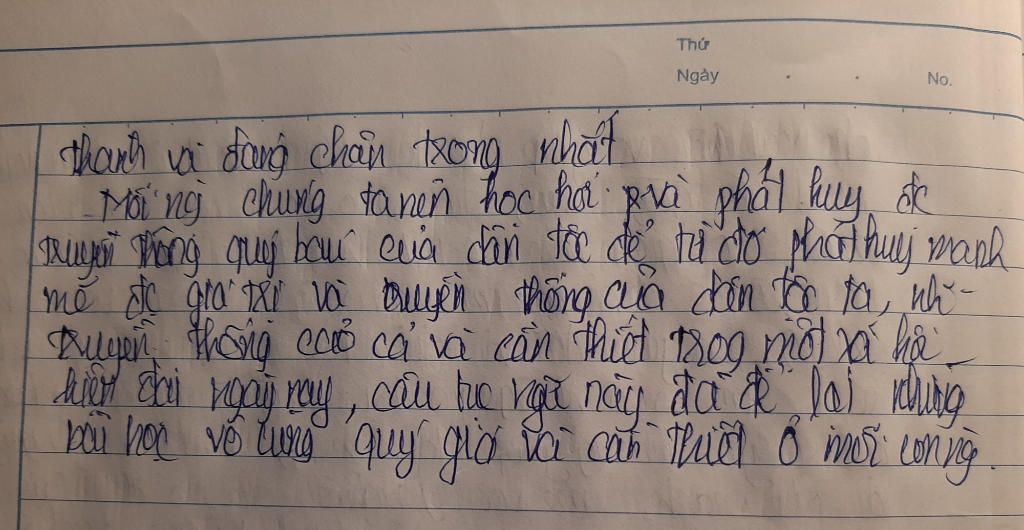 Thứ
Ngày . . No.
thanh và đang chân trong nhất
Mỗi ng chúng ta nên học hỏi và phát huy đc
truyền thống quý báu của dân tôc để từ đó phát huy manh
mẽ đc giá trị và truyền thống của dân tôc ta, nh
truyền thống cao cả và cần thiết trog môt xã hôi
hiên đai ngày nay, câu tuc ngữ này đã để lai những
bài học vô cùng quý giá và cần thiết ở mỗi con ng.